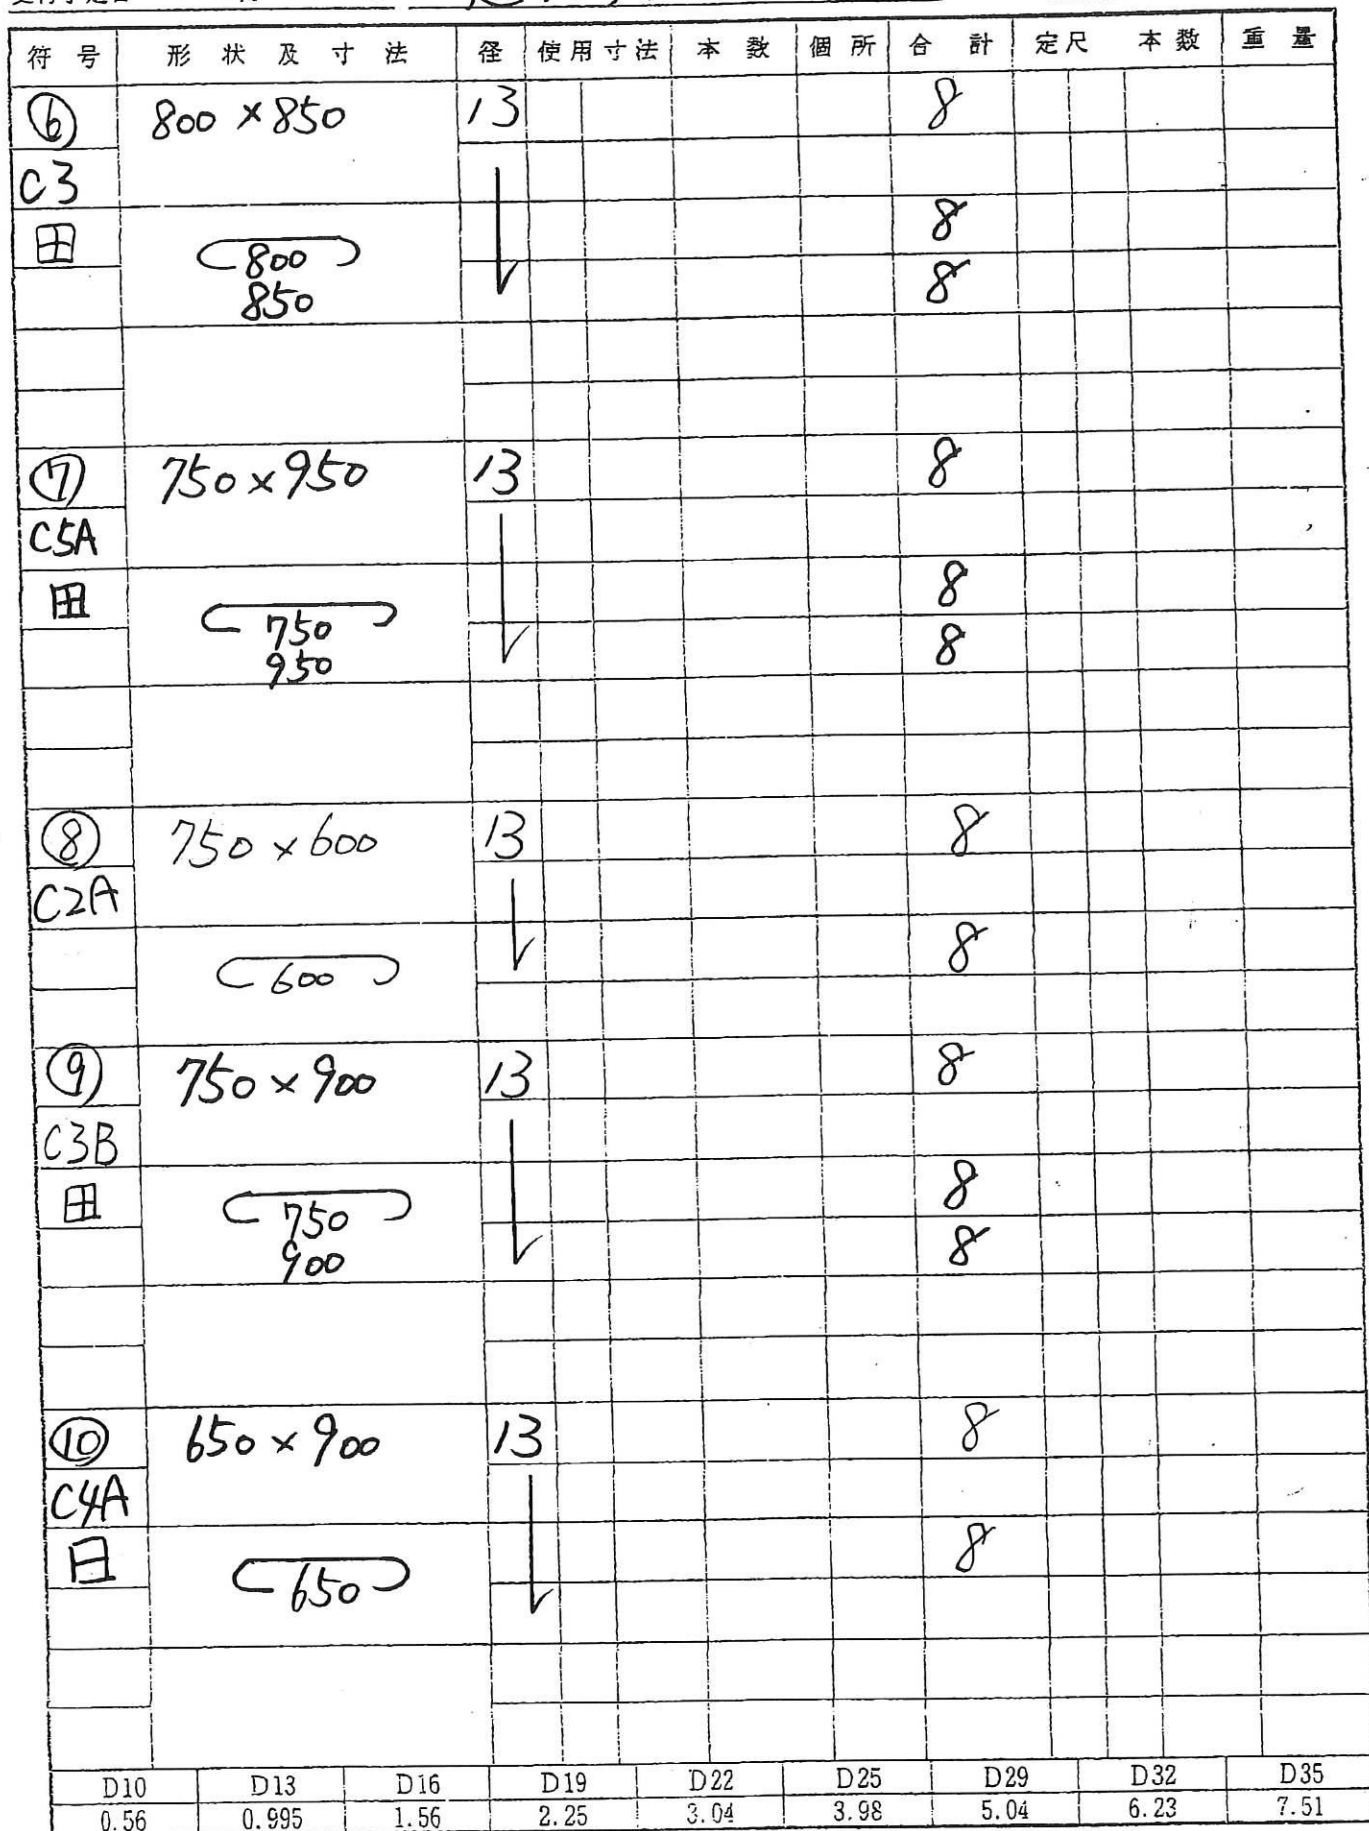 符号 形状及寸法 径 使用寸法 本数 個所 合計 定尺 本数 重量
⑥ 800×850 13 8
C3
田 800 8
850 8
⑦ 750×950 13 8
C5A
田 750 8
950 8
⑧ 750×600 13 8
C2A
600 8
⑨ 750×900 13 8
C3B
田 750 8
900 8
⑩ 650×900 13 8
C4A
日 650 8
D10 D13 D16 D19 D22 D25 D29 D32 D35
0.56 0.995 1.56 2.25 3.04 3.98 5.04 6.23 7.51